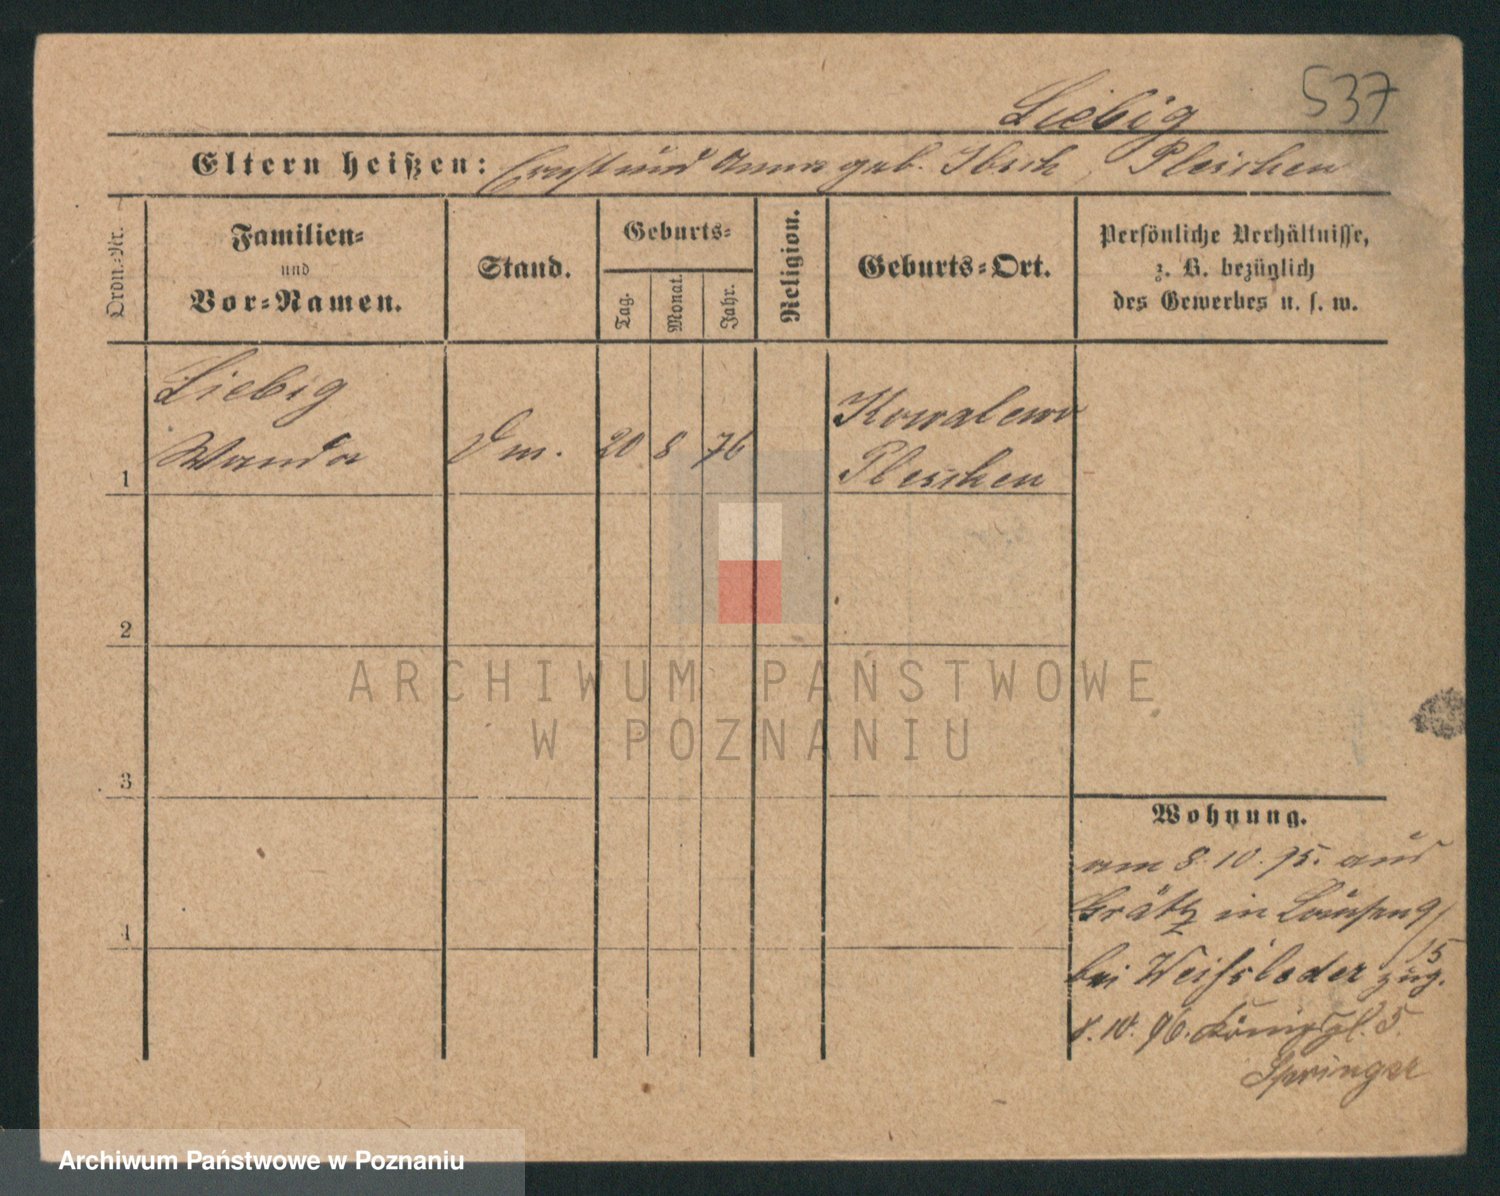 537
Liebig
Eltern heißen: Ernst und Anna geb. Ibsch, Pleschen
Ordn.-Nr.
Familien-
und
Vor-Namen.
Stand.
Geburts-
Tag.
Monat.
Jahr.
Religion.
Geburts-Ort.
Persönliche Verhältnisse,
z. B. bezüglich
des Gewerbes u. s. w.
Liebig
Wanda
Dm.
20 8 76
Kowalewo
Pleschen
1
2
3
4
Wohnung.
am 8.10.95. aus
Grätz in
bei Weissleder zug.
8.10.96. Königspl. 5.
Springer
ARCHIWUM PAŃSTWOWE
W POZNANIU
Archiwum Państwowe w Poznaniu